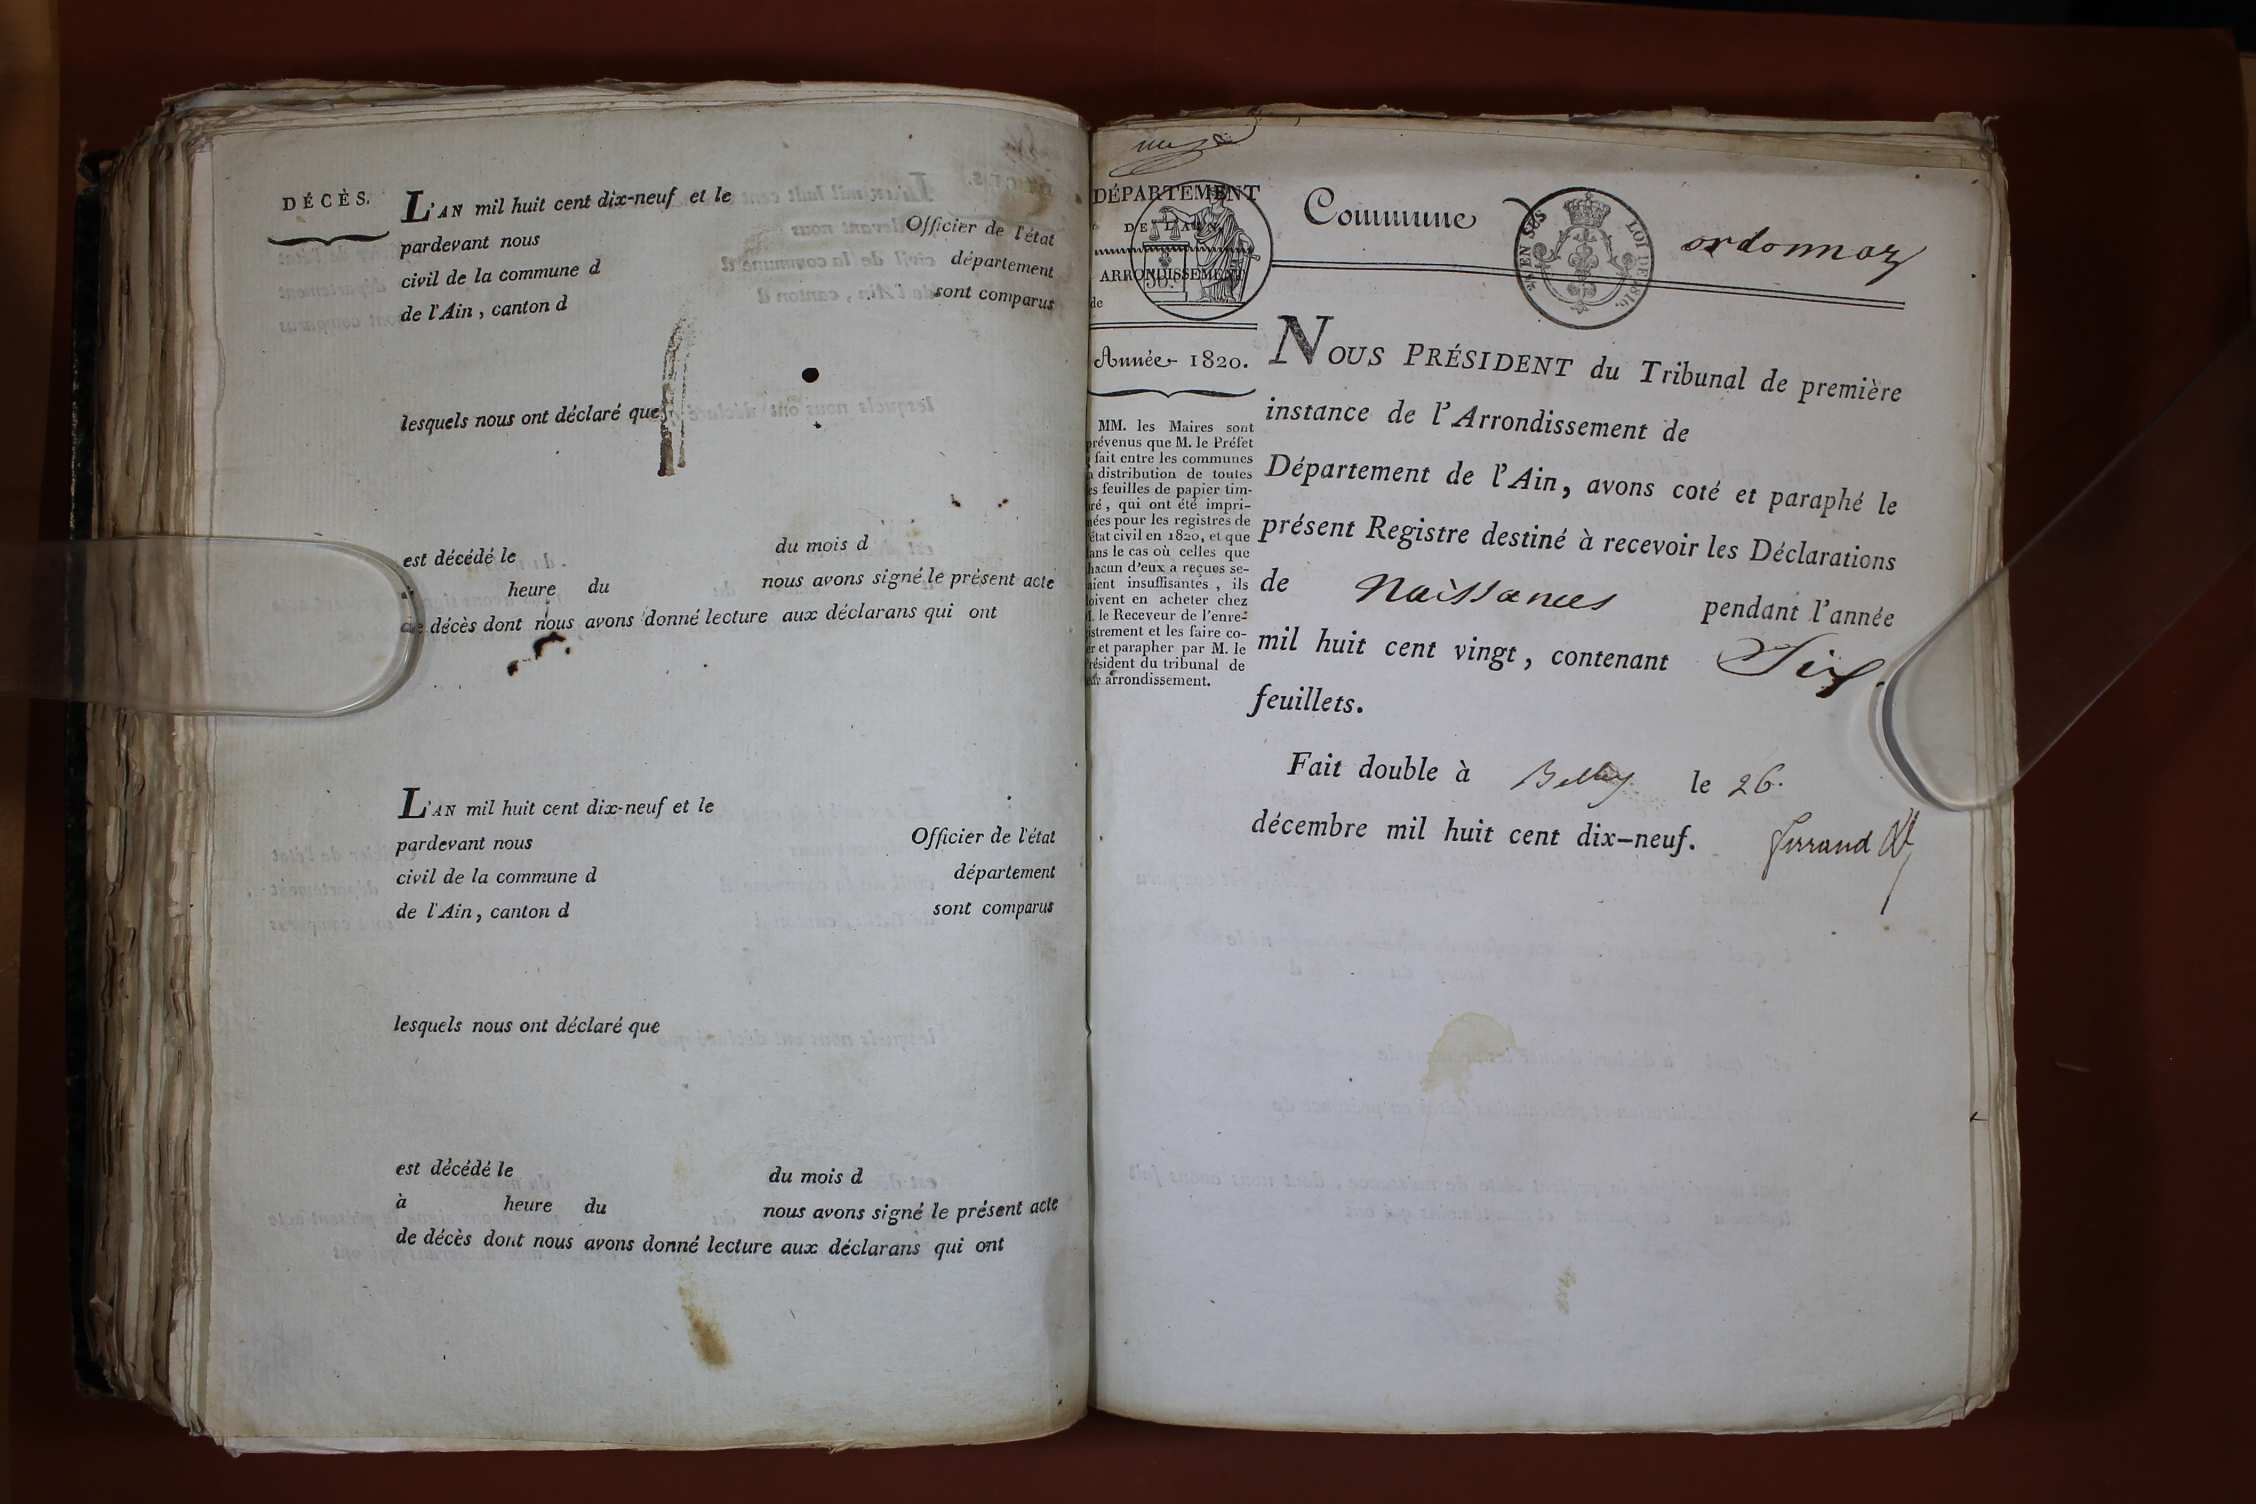 DÉCÈS.
L'AN mil huit cent dix-neuf et le
pardevant nous Officier de l'état
civil de la commune d département
de l'Ain, canton d sont comparus
lesquels nous ont déclaré que
est décédé le du mois d
heure du nous avons signé le présent acte
de décès dont nous avons donné lecture aux déclarans qui ont
L'AN mil huit cent dix-neuf et le
pardevant nous Officier de l'état
civil de la commune d département
de l'Ain, canton d sont comparus
lesquels nous ont déclaré que
est décédé le du mois d
à heure du nous avons signé le présent acte
de décès dont nous avons donné lecture aux déclarans qui ont
DÉPARTEMENT
DE L'AIN
ARRONDISSEMENT
de
Année 1820.
MM. les Maires sont
prévenus que M. le Préfet
fait entre les communes
distribution de toutes
es feuilles de papier tim-
ré, qui ont été impri-
mées pour les registres de
l'état civil en 1820, et que
dans le cas où celles que
chacun d'eux a reçues se-
aient insuffisantes, ils
doivent en acheter chez
M. le Receveur de l'enre-
gistrement et les faire co-
er et parapher par M. le
Président du tribunal de
arrondissement.
Commune D'ordonnaz
EN SUS LOI DE 1816.
NOUS PRÉSIDENT du Tribunal de première
instance de l'Arrondissement de
Département de l'Ain, avons coté et paraphé le
présent Registre destiné à recevoir les Déclarations
de Naissances pendant l'année
mil huit cent vingt, contenant Six
feuillets.
Fait double à Belley le 26.
décembre mil huit cent dix-neuf. Ferrand